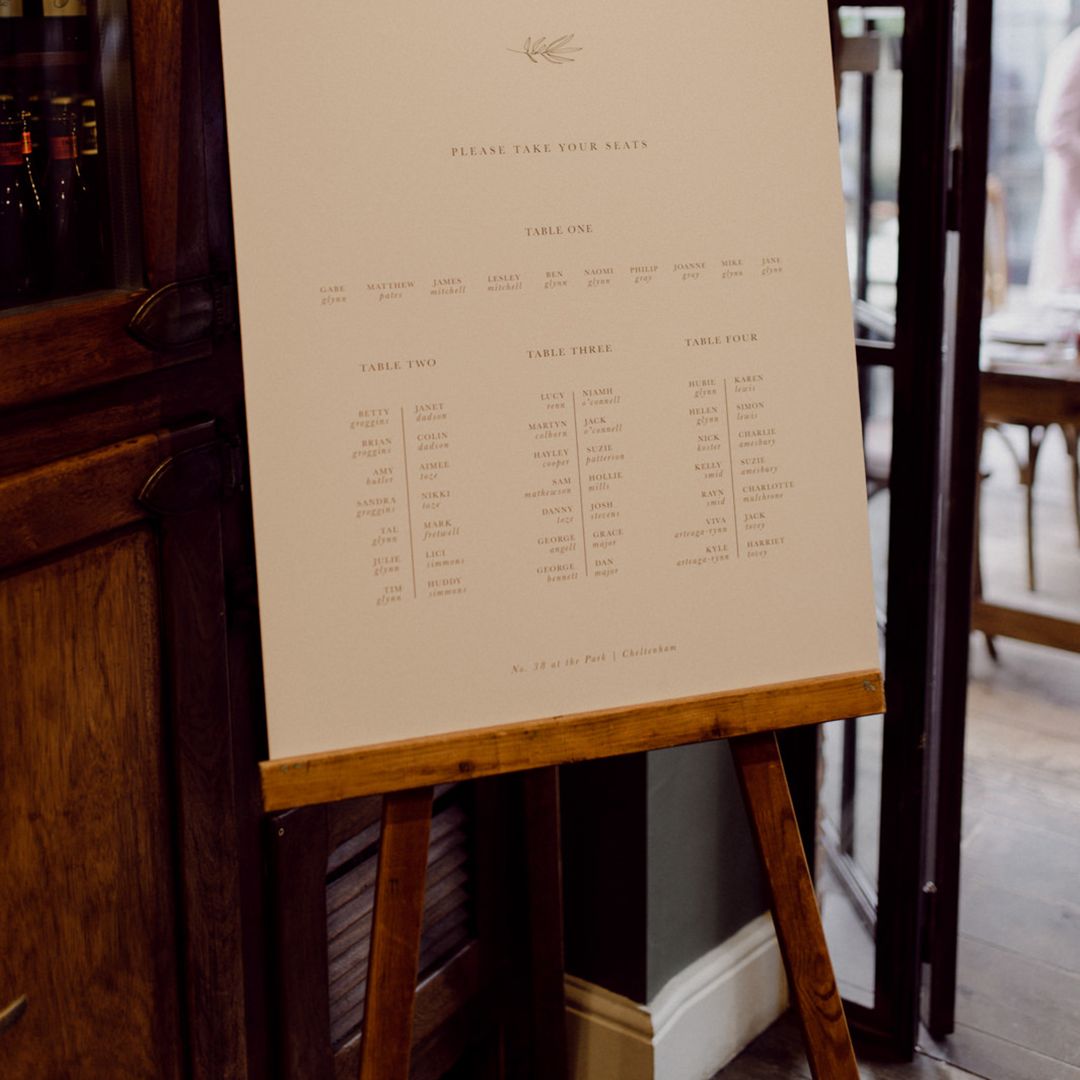 PLEASE TAKE YOUR SEATS
TABLE ONE
GABE MATTHEW JAMES LESLEY BEN NAOMI PHILIP JOANNE MIKE JANE
glynn pates mitchell mitchell glynn glynn gray gray glynn glynn
TABLE TWO
BETTY JANET
groggins dadson
BRIAN COLIN
groggins dadson
AMY AIMEE
butler toze
SANDRA NIKKI
groggins toze
TAL MARK
glynn fretwell
JULIE LICI
glynn simmons
TIM HUDDY
glynn simmons
TABLE THREE
LUCY NIAMH
renn o'connell
MARTYN JACK
colborn o'connell
HAYLEY SUZIE
cooper patterson
SAM HOLLIE
mathewson mills
DANNY JOSH
toze stevens
GEORGE GRACE
angell major
GEORGE DAN
bennell major
TABLE FOUR
HUBIE KAREN
glynn lewis
HELEN SIMON
glynn lewis
NICK CHARLIE
koster amesbury
KELLY SUZIE
smid amesbury
RAYN CHARLOTTE
smid mulchrone
VIVA JACK
arteaga-rynn tovey
KYLE HARRIET
arteaga-rynn tovey
No. 38 at the Park | Cheltenham